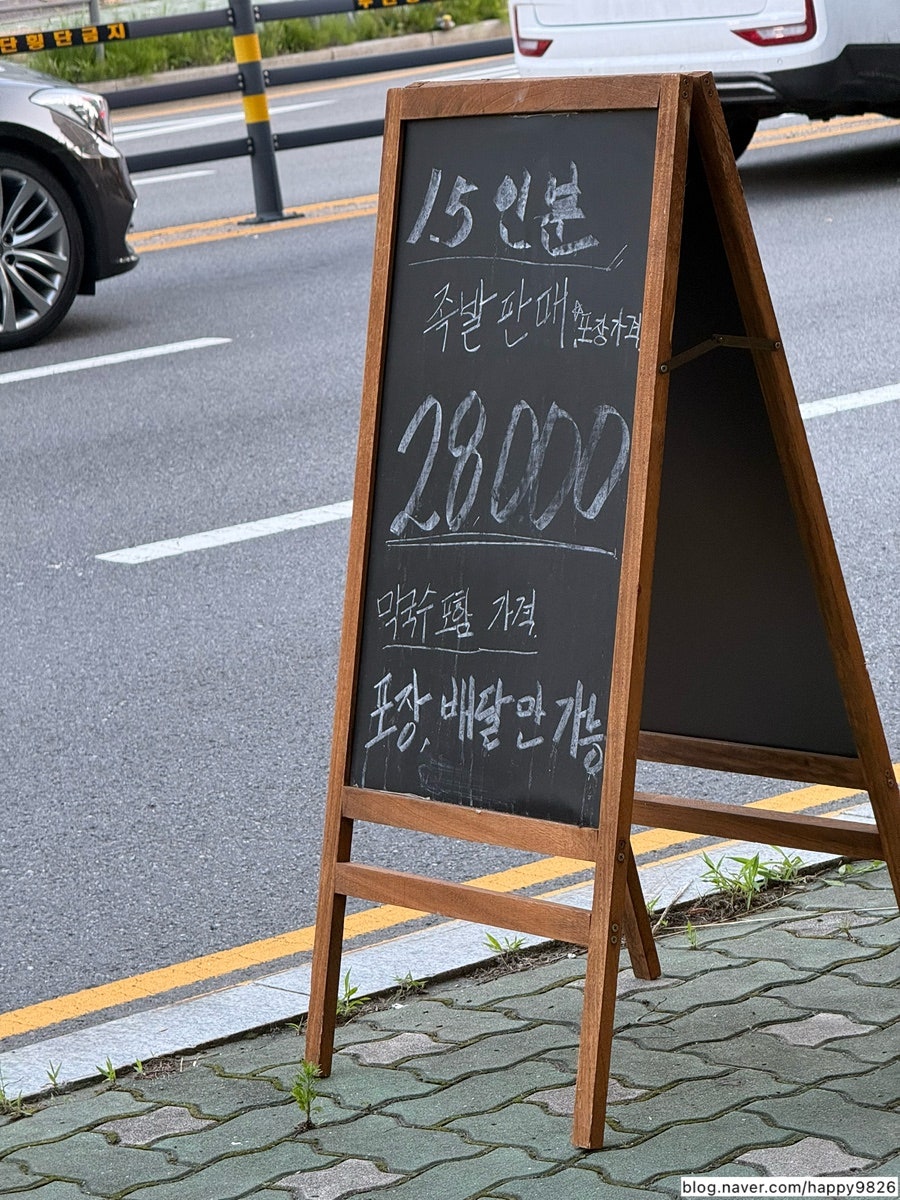 단횡단금지
1.5 인분
족발 판매 *포장가격
28000
막국수 포함 가격
포장, 배달만 가능
blog.naver.com/happy9826